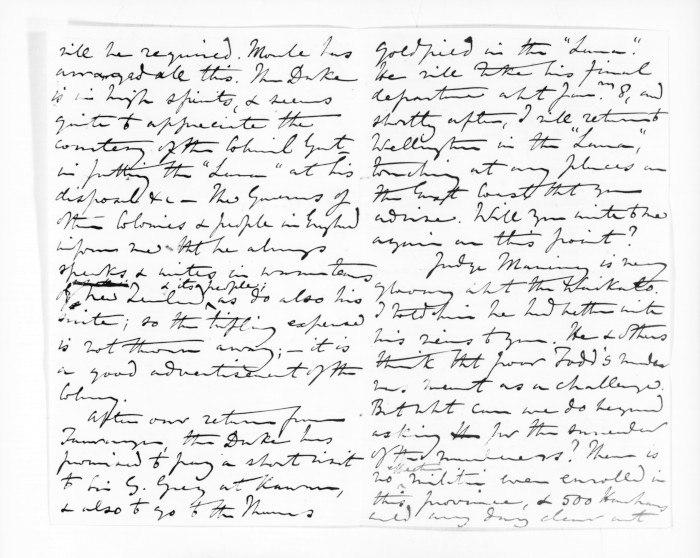 will be required. Moule has
arranged all this. The Duke
is in high spirits, & seems
quite to appreciate the
courtesy of the Colonial Govt
in putting the "Luna" at his
disposal &c — The Governors of
other Colonies & people in England
inform me that he always
speaks & writes in warm terms
of New Zealand & its people, as do also his
suite; so the trifling expense
is not thrown away; — it is
a good advertisement of the
Colony.
After our return from
Tauranga, the Duke has
promised to pay a short visit
to Sir G. Grey at Kawau,
& also to go to the Thames
Goldfield in the "Luna".
He will take his final
departure abt Jany 8, and
shortly after, I will return to
Wellington in the "Luna",
touching at any places on
the East Coast that you
advise. Will you write to me
again on this point?
Judge Maning is very
gloomy abt the Waikato.
I told him he had better write
his views to you. He & others
think that poor Todd's murder
was meant as a challenge.
But what can we do beyond
asking for the surrender
of the murderers? There is
no effective militia even enrolled in
this province, & 500 Hauhaus
could any day clear out